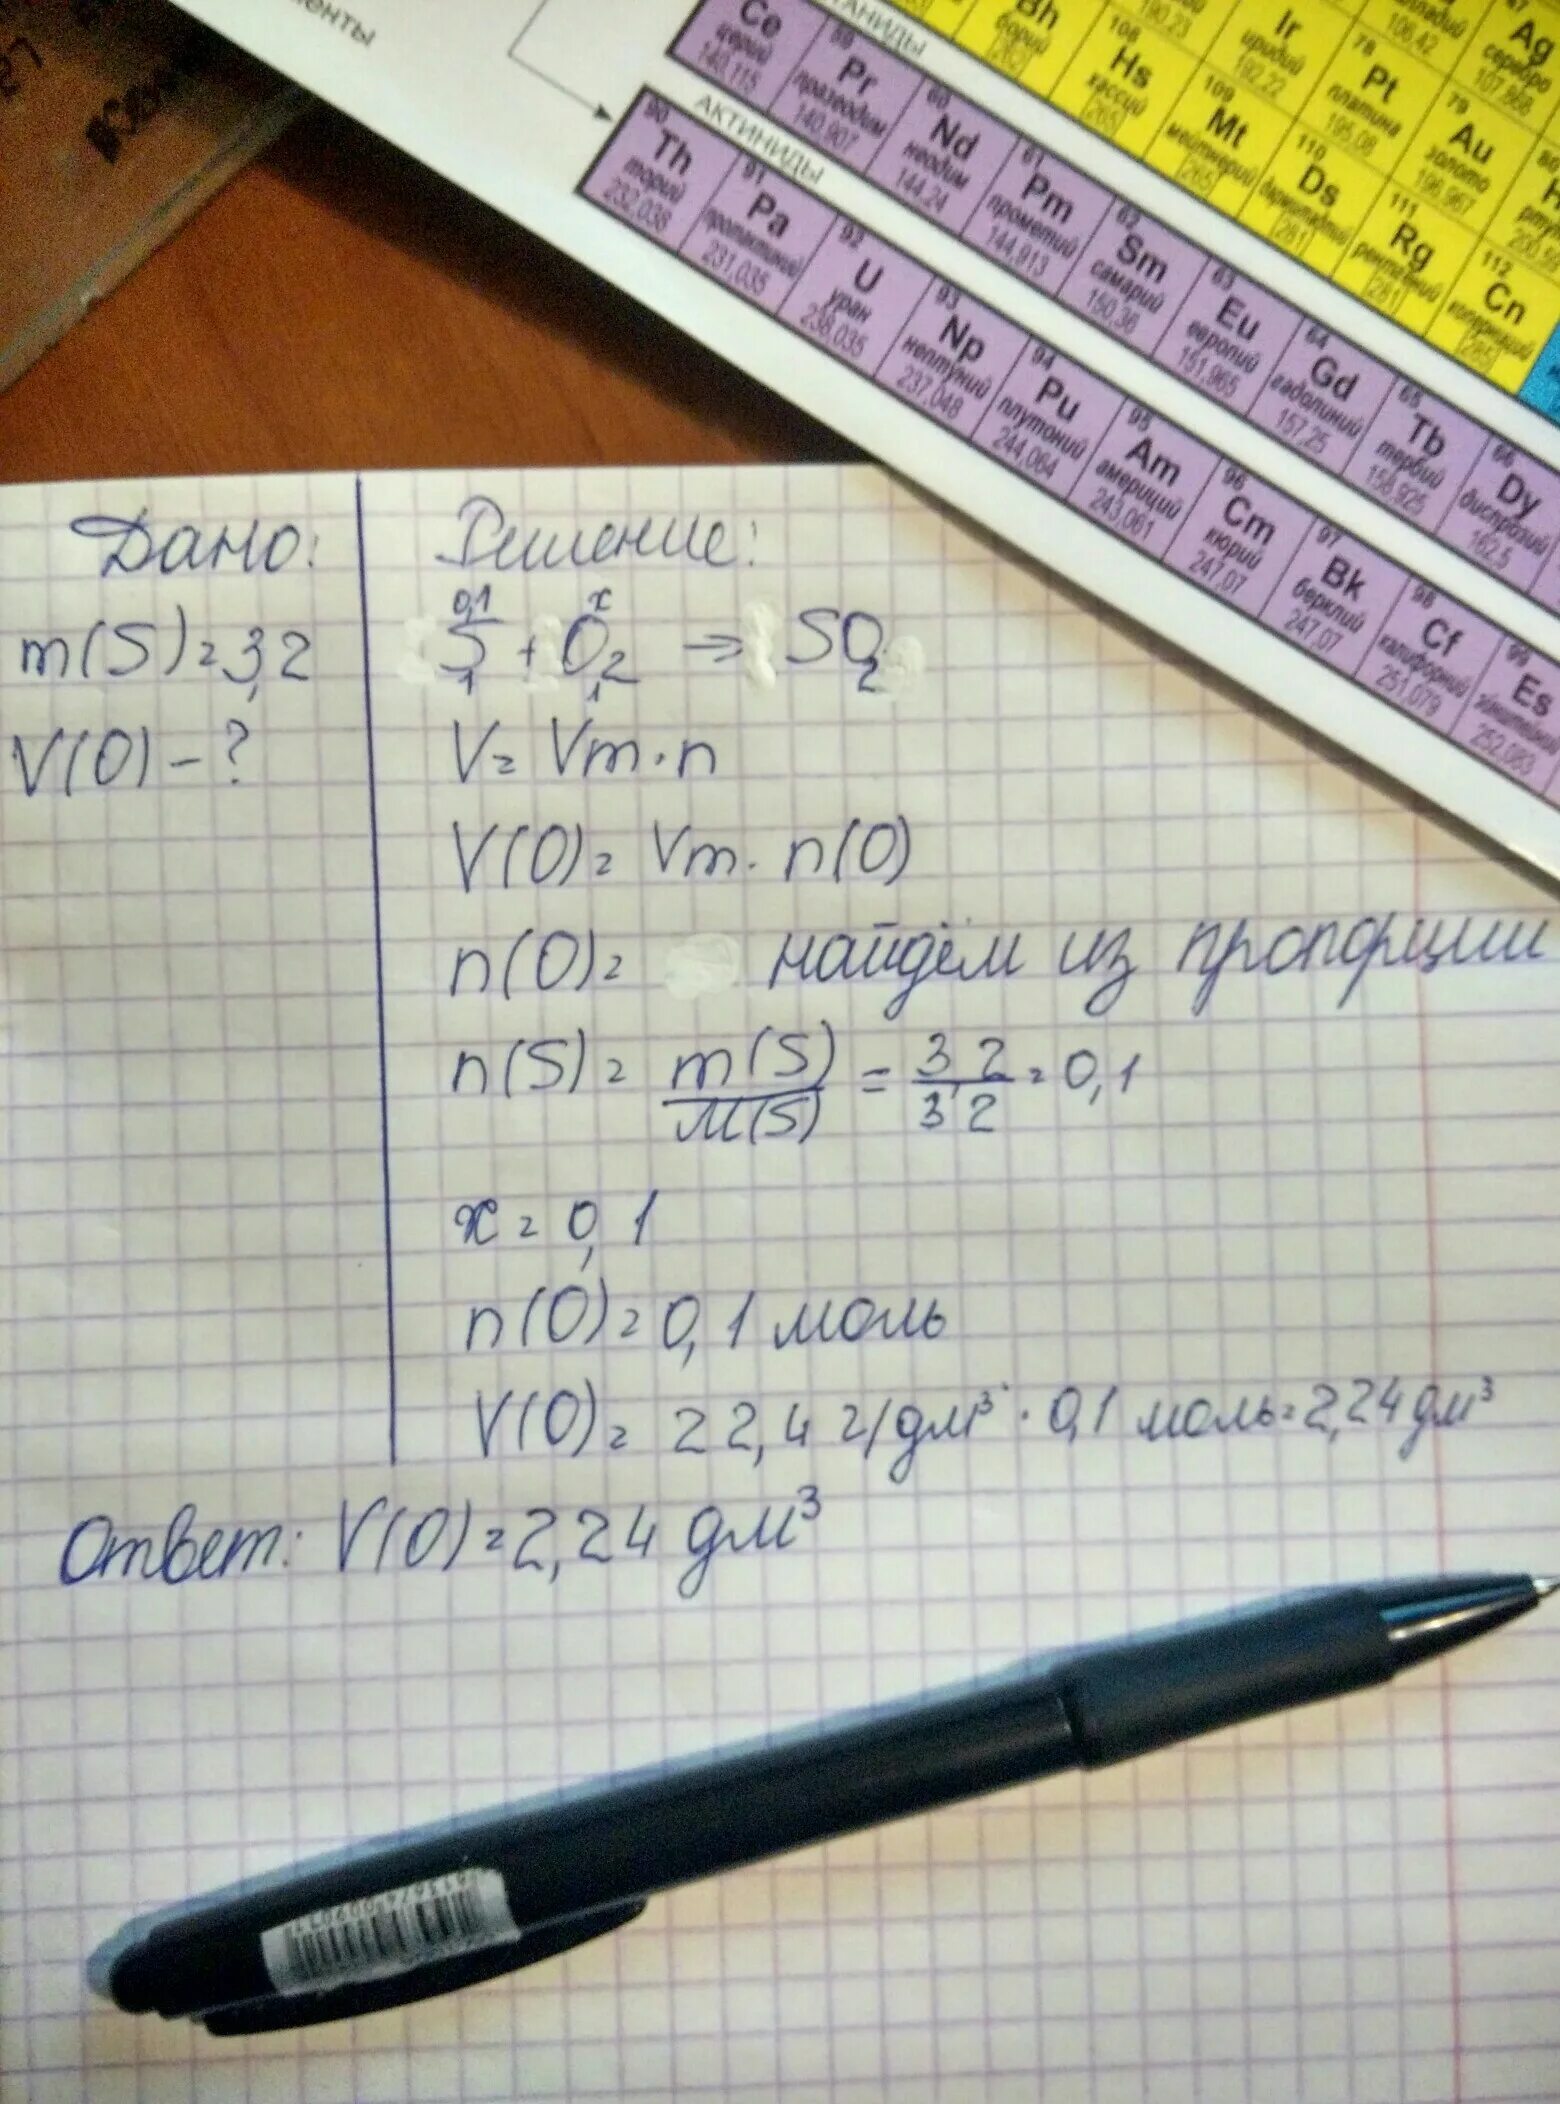 Дано:
m(S)=3,2
V(O)-?
Решение:
0,1 x
S + O2 → SO2
1 1
V= Vm·n
V(O)= Vm·n(O)
n(O)= найдём из пропорции
n(S)= m(S)/M(S) = 3,2/32 = 0,1
x=0,1
n(O)=0,1 моль
V(O)= 22,4 г/дм³·0,1 моль=2,24 дм³
Ответ: V(O)=2,24 дм³
АКТИНИДЫ
Ce
церий
140,115
59
Pr
празеодим
140,907
60
Nd
неодим
144,24
61
Pm
прометий
144,913
62
Sm
самарий
150,36
63
Eu
европий
151,965
64
Gd
гадолиний
157,25
65
Tb
тербий
158,925
66
Dy
диспрозий
162,5
90
Th
торий
232,038
91
Pa
протактиний
231,035
92
U
уран
238,035
93
Np
нептуний
237,048
94
Pu
плутоний
244,064
95
Am
америций
243,061
96
Cm
кюрий
247,07
97
Bk
берклий
247,07
98
Cf
калифорний
251,079
99
Es
эйнштейний
252,083
Bh
борий
[262]
108
Hs
хассий
[265]
109
Mt
мейтнерий
[265]
110
Ds
дармштадтий
[281]
111
Rg
рентгений
[281]
112
Cn
коперниций
[285]
190,23
Ir
иридий
192,22
78
Pt
платина
195,08
79
Au
золото
196,967
80
106,42
47
Ag
серебро
107,868